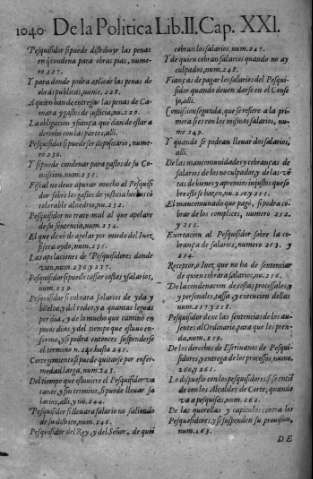 1040 De la Politica Lib. II. Cap. XXI.
Pesquisidor si puede distribuir las penas
en hazienda para obras pias, nume-
ro 227.
Y para donde podra aplicar las penas de
obras publicas, nume. 228.
A quien han de entregar las penas de Ca-
mara y gastos de justicia, nu. 229.
La obligacion y fiança que han de estar a
derecho con las partes, alli.
Pesquisidor si puede ser depositario, nume-
ro 230.
Y si puede condenar para gastos de su Co-
mission, num. 231.
Fiscal no deue apurar mucho al Pesquisi-
dor sobre los gastos de justicia
tolerable alcedrio, nu. 232.
Pesquisidor no trate mal al que apelare
de su sentencia, num. 234.
El que dexò de apelar por miedo del Iuez
si sera oydo, num. 235.
Las apelaciones de Pesquisidores donde
van, num. 236 y 237.
Pesquisidor si puede tassar costas y salarios,
num. 239
Pesquisidor si cobrara salarios de yda y
buelta, y del
por dia, y de lo mucho que caminò en
pocos dias y del tiempo que estuuo en-
fermo, y si podra entonces suspenderse
el termino n. 241. hasta 242.
Corregimiento si puede quitarse por enfer-
medad larga, num. 243.
Del tiempo que estuuiere el Pesquisidor va-
caue, y sin termino, si puede lleuar sa-
larios, alli, y nu. 244.
Pesquisidor si llenara salario no saliendo
de su distrito, num. 246.
Pesquisidor del Rey, y del Señor, de quié
cobran los salarios, num. 247.
Y de quien cobraran salarios quando no ay
culpados, num. 248.
Fianças de pagar los salarios del Pesqui-
sidor quando deuen darse en el Conse-
jo, alli.
Comission segunda, que se refiere a la pri-
mera si es con los mismos salarios, nu-
mero 249.
Y quando se podran lleuar dos salarios,
alli.
De las mancomunidades y cobranças de
salarios de los no culpados, y de las
de los unos y apremios injustos que so-
bre esto se hazen, nu. 250. y 251.
El mancomunado que pagò, si podra co-
brar de los complices, numero 252.
y 255.
Execucion al Pesquisidor sobre la co-
brança de salarios, numero 253. y
254.
Receptor, o Iuez que no ha de sentenciar
de quien cobrara salarios, nu. 256.
De la condenacion de costas, processales, y
y personales, tassa, y execucion dellas
num. 257 y 258.
Pesquisidor dexe las sentencias de los au-
sentes al Ordinario, para que los pren-
da, num. 259.
De los derechos de Escriuanos de Pesqui-
sidores, y entrega de los processos, numa.
260. y 261.
Lo dispuesto en los pesquisidores si se entié-
de con los Alcaldes de Corte, quando
va a pesquisas, num. 262.
De las querellas y capitulos contra los
Pesquisidores: y si suspenden su prouision,
num. 263.
DE